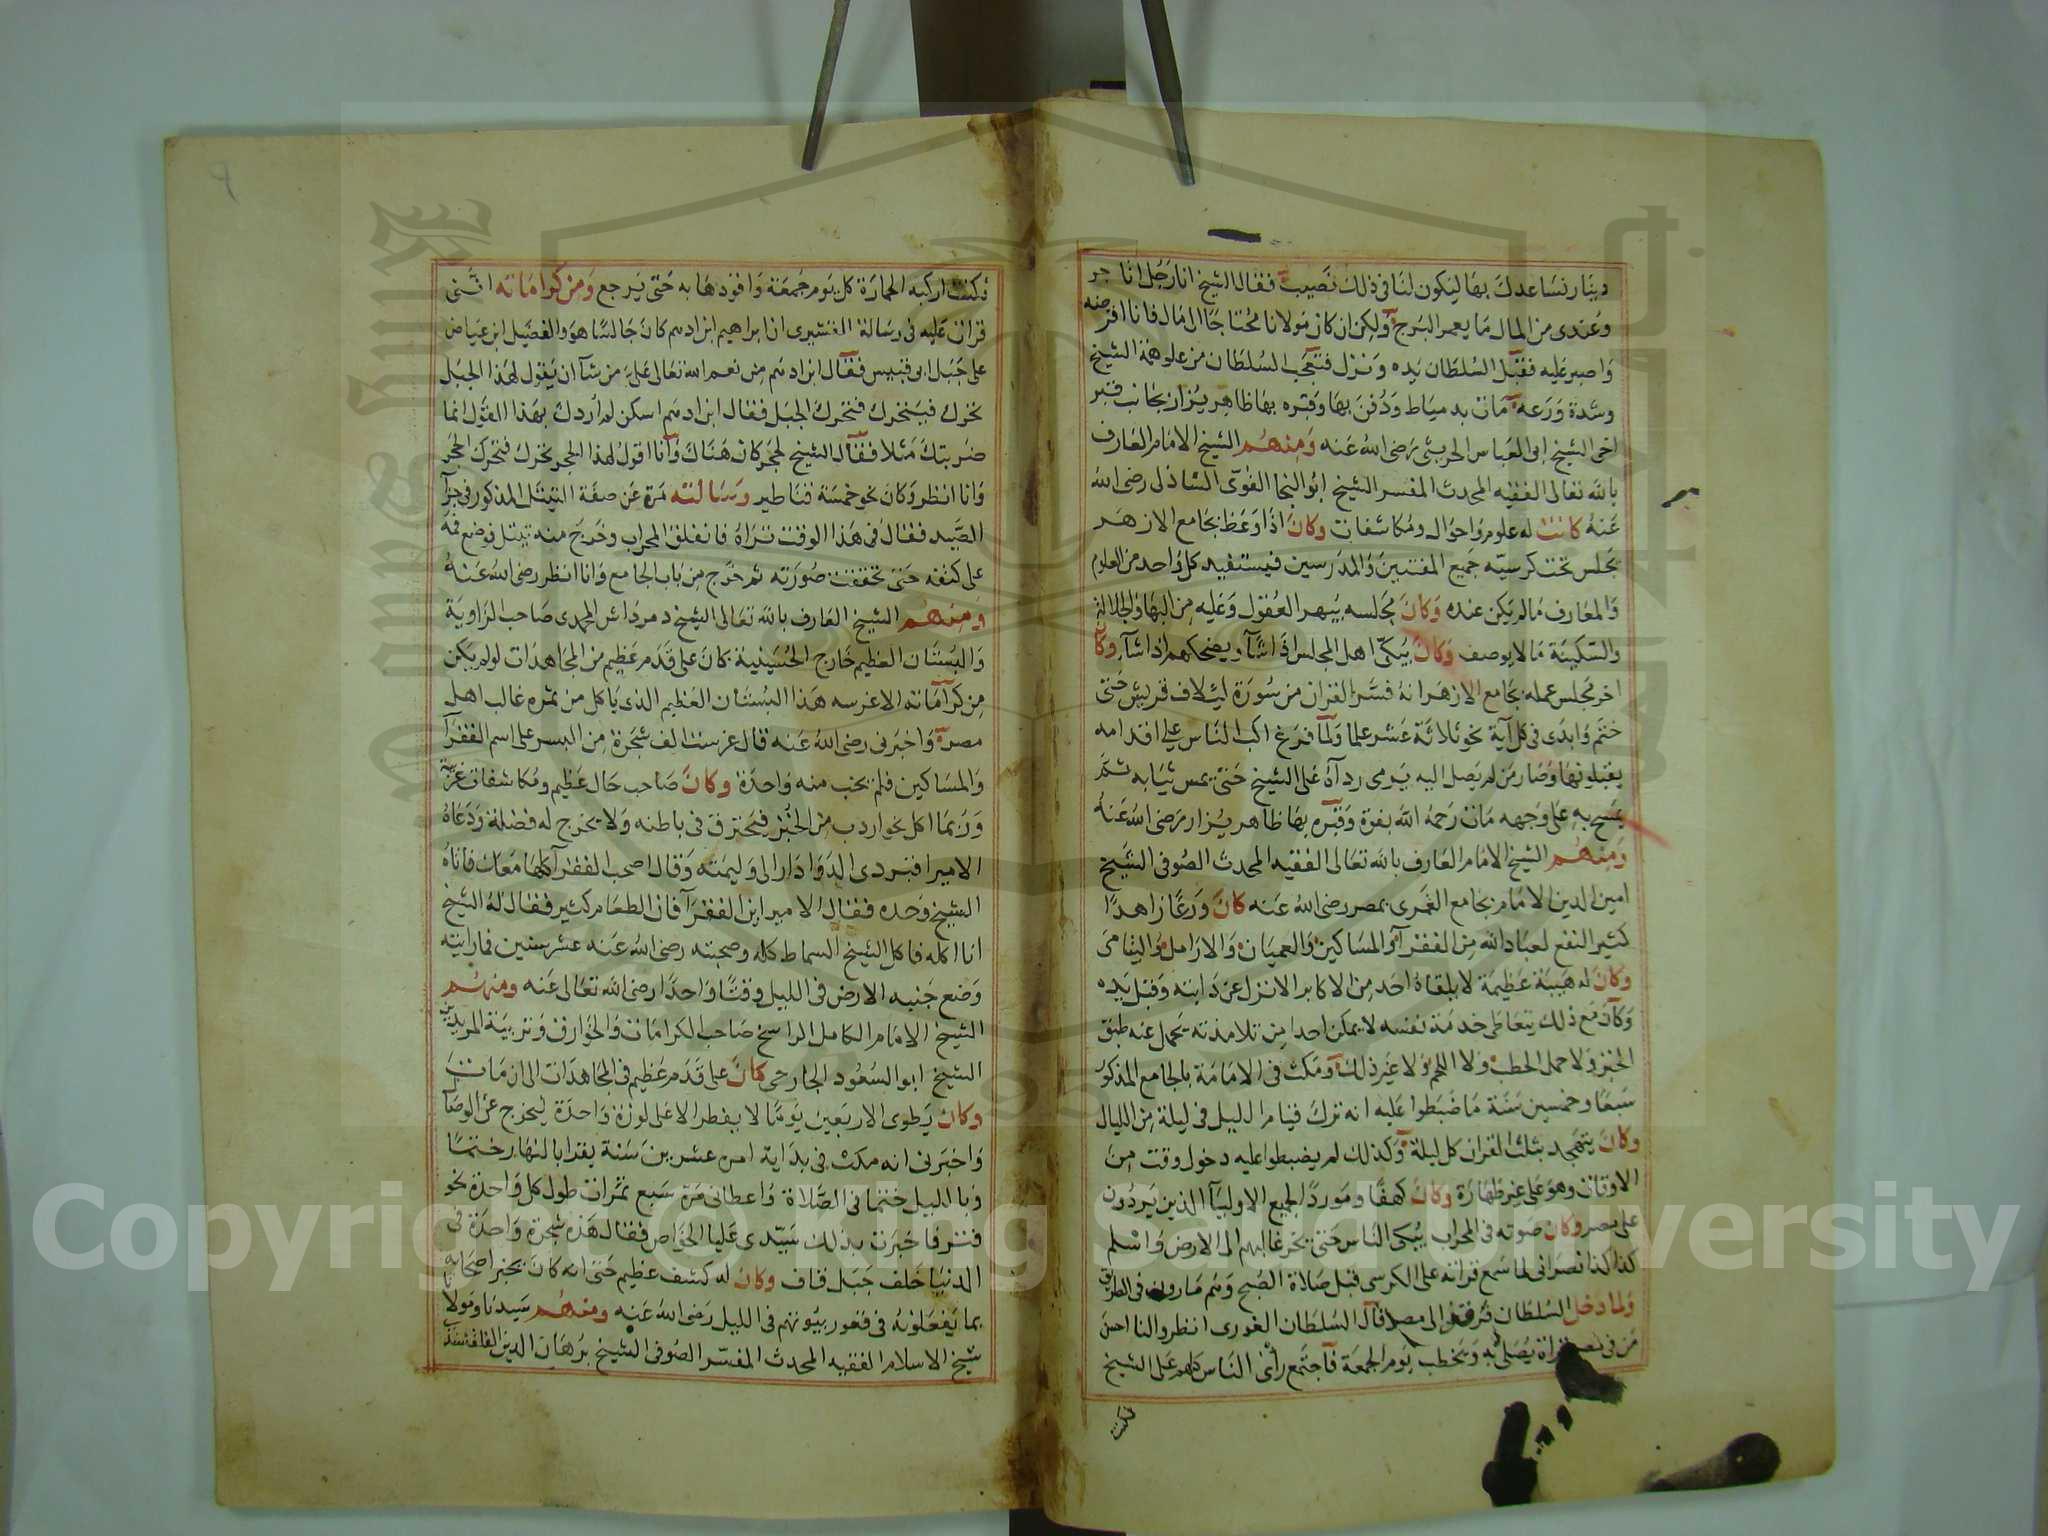 دينار نساعدك بها ليكون لنا في ذلك نصيب فقال الشيخ انا رجل انا حر
وعندي من المال ما يعمر البرج ولكن ان كان مولانا محتاجا الى المال فانا اقرضه
واصبر عليه فقبل السلطان يده ونزل فتعجب السلطان من علو همة الشيخ
وشدة ورعه مات بدمياط ودفن بها وقبره بها ظاهر يزار بجانب قبر
اخي الشيخ ابي العباس الحريثي رضي الله عنه ومنهم الشيخ الامام العارف
بالله تعالى الفقيه المحدث المفسر الشيخ ابو النجا الفوي الشاذلي رضي الله
عنه كانت له علوم واحوال ومكاشفات وكان اذا وعظ بجامع الازهر
يجلس تحت كرسيه جميع المفتيين والمدرسين فيستفيد كل واحد من العلوم
والمعارف ما لم يكن عنده وكان مجلسه يبهر العقول وعليه من البها والجلالة
والسكينة ما لا يوصف وكان يبكي اهل المجلس اذا شآ ويضحكهم اذا شآ وكان
اخر مجلس عمله بجامع الازهر انه فسر القران من سورة ليلاف قريش حتى
ختم وابدى في كل آية نحو ثلاثة عشر علما ولما فرغ اكب الناس على اقدامه
يقبلونها وصار من لم يصل اليه يرمى ردآه على الشيخ حتى يمس ثيابه ثم
يمسح به على وجهه مات رحمه الله بفوة وقبره بها ظاهر يزار رضي الله عنه
ومنهم الشيخ الامام العارف بالله تعالى الفقيه المحدث الصوفي الشيخ
امين الدين الامام بجامع الغمري بمصر رضي الله عنه كان ورعا زاهدا
كثير النفع لعباد الله من الفقرآ والمساكين والعميان والارامل واليتامى
وكان له هيبة عظيمة لا يلقاه احد من الاكابر الا نزل عن دابته وقبل يده
وكان مع ذلك يتعاطى خدمة نفسه لا يمكن احدا من تلامذته يحمل عنه طبق
الخبز ولا حمل الحطب ولا اللحم ولا غير ذلك ومكث في الامامة بالجامع المذكور
سبعا وخمسين سنة ما ضبطوا عليه انه ترك قيام الليل في ليلة من الليال
وكان يتهجد بثلث القران كل ليلة وكذلك لم يضبطوا عليه دخول وقت من
الاوقات وهو على غير طهارة وكان كهفا وموردا لجميع الاوليآ الذين يردون
على مصر وكان صوته في المحراب يبكي الناس حتى يخر غالبهم الى الارض واسلم
كذا كذا نصراني لما سمع قراته على الكرسي قبل صلاة الصبح وهم مارون في الطريق
ولما دخل السلطان قرقد الى مصر قال السلطان الغوري انظروا لنا احسن
من في مصر قراة يصلي به ويخطب يوم الجمعة فاجتمع رأي الناس كلهم على الشيخ
فكنت
فكنت اركبه الحمارة كل يوم جمعة واقودها به حتى يرجع ومن كراماته انني
قرات عليه في رسالة القشيري ان ابراهيم ابن ادهم كان جالسا هو والفضيل ابن عياض
على جبل ابو قبيس فقال ابن ادهم من نعم الله تعالى على من شآ ان يقول لهذا الجبل
تحرك فيتحرك فتحرك الجبل فقال ابن ادهم اسكن لم اردك بهذا القول انما
ضربتك مثلا فقال الشيخ لحجر كان هناك وانا اقول لهذا الحجر تحرك فتحرك الحجر
وانا انظر وكان نحو خمسة قناطير وسالته مرة عن صفة التيتل المذكور في جزآ
الصيد فقال في هذا الوقت تراه فانفلق المحراب وخرج منه تيتل فوضع فمه
على كتفه حتى تحققت صورته ثم خرج من باب الجامع وانا انظر رضي الله عنه
ومنهم الشيخ العارف بالله تعالى الشيخ دمرداش المحمدي صاحب الزاوية
والبستان العظيم خارج الحسينية كان على قدم عظيم من المجاهدات لو لم يكن
من كراماته الا غرسه هذا البستان العظيم الذي ياكل من ثمره غالب اهل
مصر واخبرني رضي الله عنه قال غرست الف شجرة من اليسر على اسم الفقرآ
والمساكين فلم تخب منه واحدة وكان صاحب حال عظيم ومكاشفات غريبة
وربما اكل نحو اردب من الخبز فيحترق في باطنه ولا يخرج له فضلة ودعاه
الامير اقبردي الدوادار الى وليمته وقال اصحب الفقرآ كلها معك فاتاه
الشيخ وحده فقال الامير اين الفقرآ فان الطعام كثير فقال له الشيخ
انا اكله فاكل الشيخ السماط كله وصحبته رضي الله عنه عشر سنين فما رايته
وضع جنبه الارض في الليل وقتا واحدا رضي الله تعالى عنه ومنهم
الشيخ الامام الكامل الراسخ صاحب الكرامات والخوارق وتربية المريدين
الشيخ ابو السعود الجارحي كان على قدم عظيم في المجاهدات الى ان مات
وكان يطوي الاربعين يوما لا يفطر الا على لوزة واحدة ليخرج عن الوصآل
واخبرني انه مكث في بدايته عشرين سنة يقرا بالنهار ختما
وبالليل ختما في الصلاة واعطاني مرة سبع تمرات طول كل واحدة نحو
فتر فاخبرت بذلك سيدي عليا الخواص فقال هذه شجرة واحدة في
الدنيا خلف جبل قاف وكان له كشف عظيم حتى انه كان يخبر اصحابه
بما يفعلونه في قعور بيوتهم في الليل رضي الله عنه ومنهم سيدنا ومولانا
شيخ الاسلام الفقيه المحدث المفسر الصوفي الشيخ برهان الدين القلقشندي